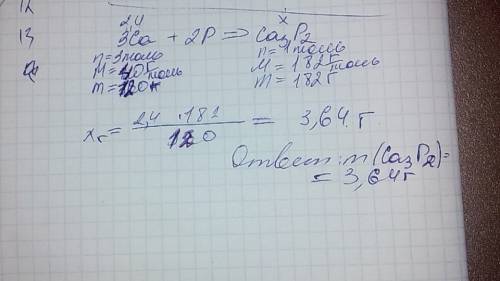 12
2,4 x
13 3Ca + 2P => Ca3P2
n=3моль n=1моль
M=40г/моль M=182г/моль
m=120г m=182г
xг = 2,4 · 182 / 120 = 3,64 г
Ответ: m (Ca3P2)=
= 3,64г